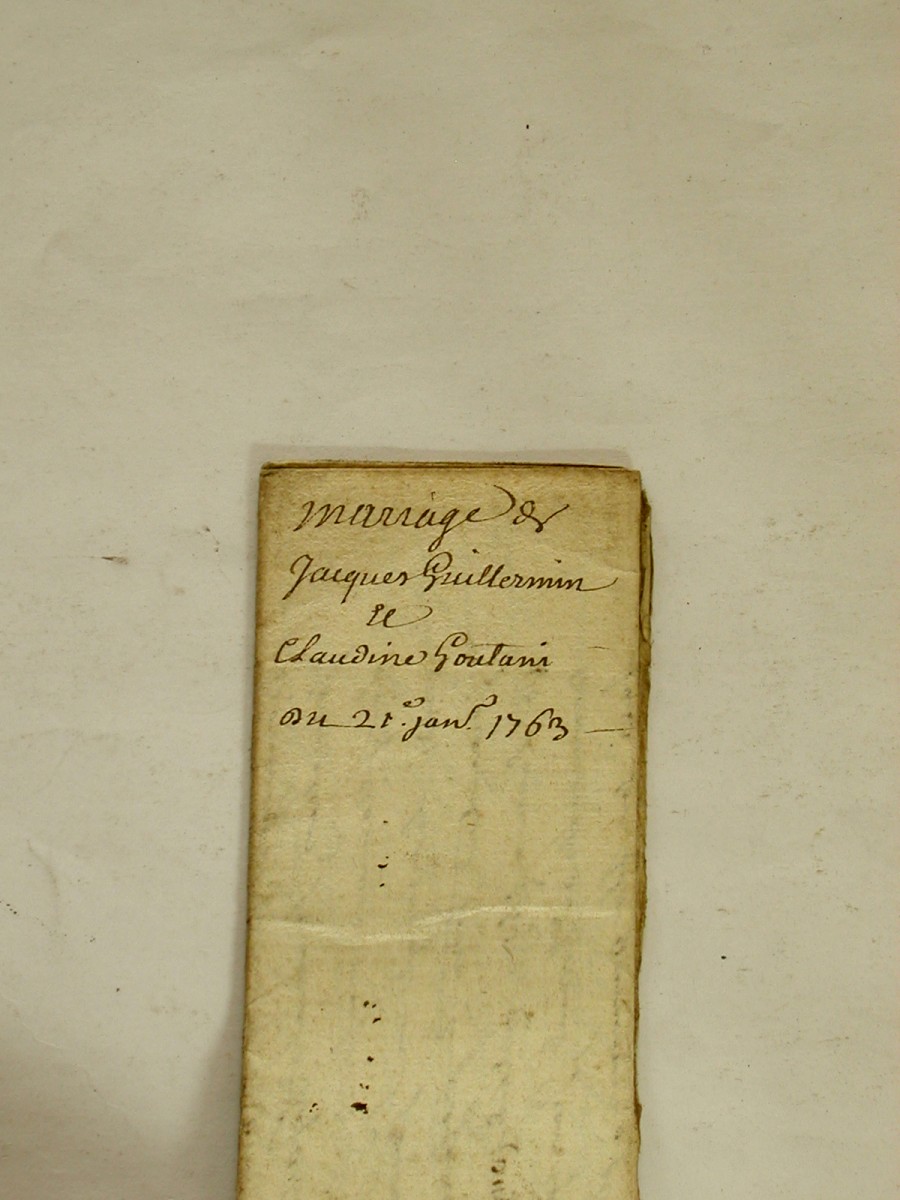 mariage de
Jacques Guillermin
et
Claudine Goutani
du 21.e janv. 1763